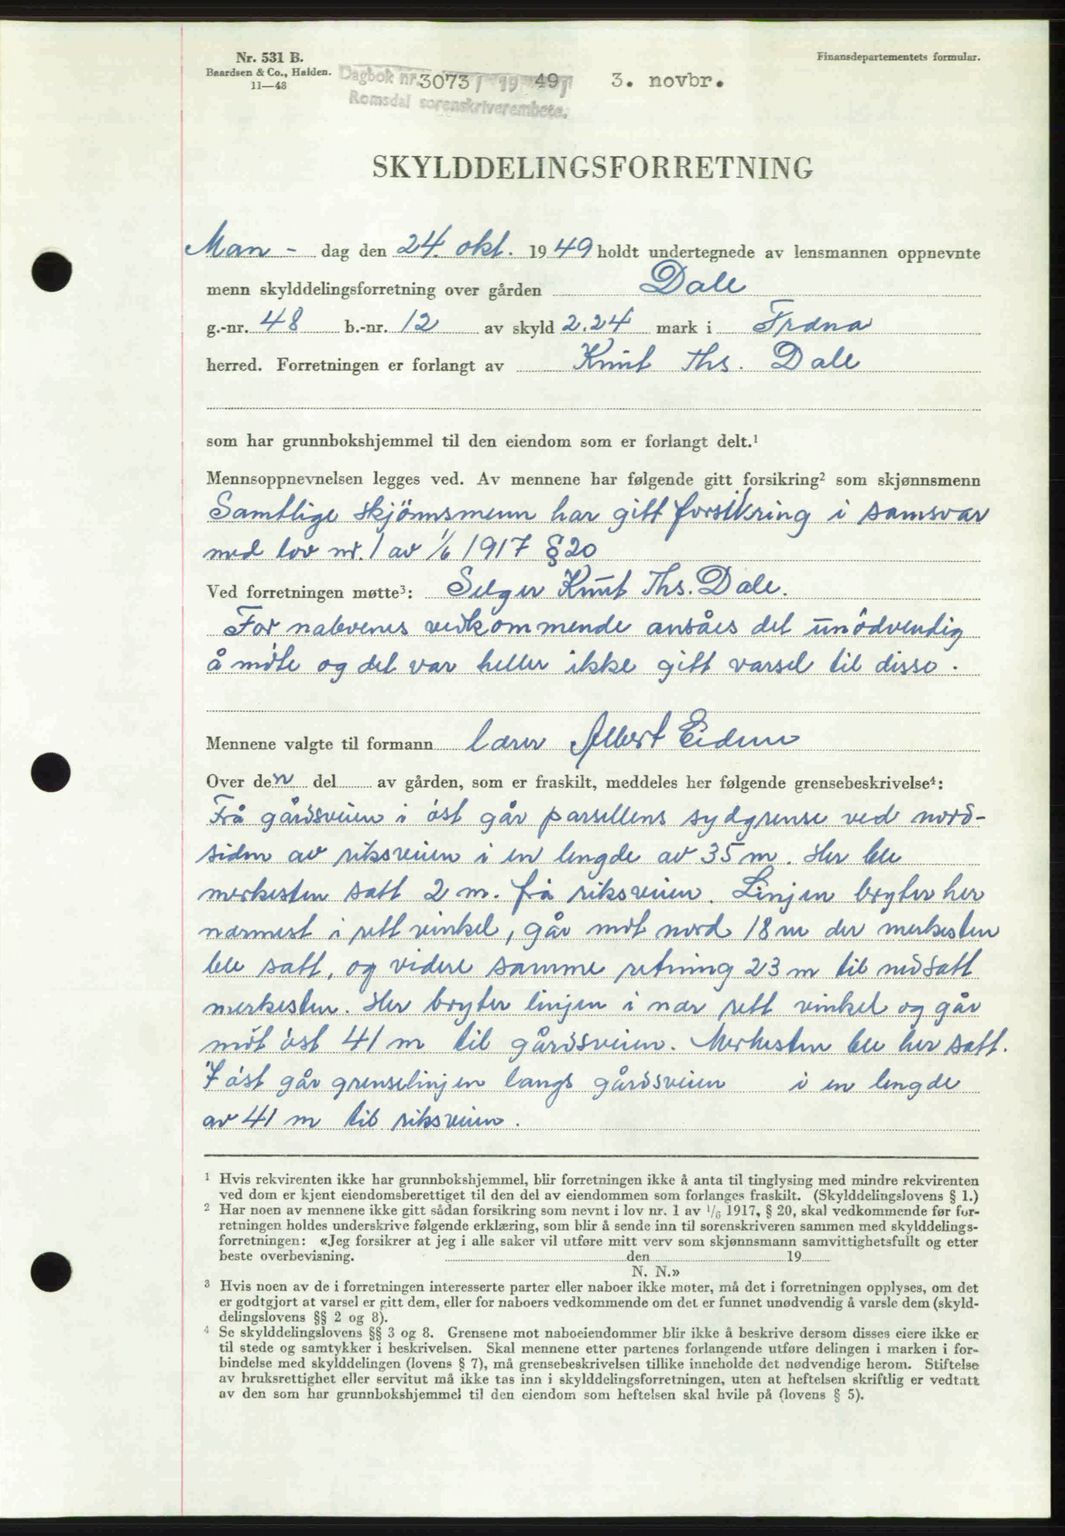 Nr. 531 B.
Baardsen & Co., Halden.
11—48
Finansdepartementets formular.
Dagbok nr. 3073 / 19 49
3. novbr.
Romsdal sorenskriverembete.
SKYLDDELINGSFORRETNING
Man - dag den 24. okt. 1949 holdt undertegnede av lensmannen oppnevnte
menn skylddelingsforretning over gården Dale
g.-nr. 48 b.-nr. 12 av skyld 2.24 mark i Fræna
herred. Forretningen er forlangt av Knut Ths. Dale
som har grunnbokshjemmel til den eiendom som er forlangt delt.¹
Mennsoppnevnelsen legges ved. Av mennene har følgende gitt forsikring² som skjønnsmenn
Samtlige skjönnsmenn har gitt forsikring i samsvar
med lov nr. 1 av 1/6 1917 § 20
Ved forretningen møtte³: Selger Knut Ths. Dale.
For naboenes vedkommende ansåes det unödvendig
å möte og det var heller ikke gitt varsel til disse.
Mennene valgte til formann lærer Albert Eidem
Over den del av gården, som er fraskilt, meddeles her følgende grensebeskrivelse⁴:
Frå gårdsveien i öst går parsellens sydgrense ved nord-
siden av riksveien i en lengde av 35 m. Her ble
merkesten satt 2 m. frå riksveien. Linjen bryter her
nærmest i rett vinkel, går möt nord 18 m der merkesten
ble satt, og videre samme retning 23 m til nedsatt
merkesten. Her bryter linjen i nær rett vinkel og går
möt öst 41 m til gårdsveien. Merkesten ble her satt.
I öst går grenselinjen langs gårdsveien i en lengde
av 41 m til riksveien.
¹ Hvis rekvirenten ikke har grunnbokshjemmel, blir forretningen ikke å anta til tinglysing med mindre rekvirenten
ved dom er kjent eiendomsberettiget til den del av eiendommen som forlanges fraskilt. (Skylddelingslovens § 1.)
² Har noen av mennene ikke gitt sådan forsikring som nevnt i lov nr. 1 av 1/6 1917, § 20, skal vedkommende før for-
retningen holdes underskrive følgende erklæring, som blir å sende inn til sorenskriveren sammen med skylddelings-
forretningen: «Jeg forsikrer at jeg i alle saker vil utføre mitt verv som skjønnsmann samvittighetsfullt og etter
beste overbevisning. den 19
N. N.»
³ Hvis noen av de i forretningen interesserte parter eller naboer ikke møter, må det i forretningen opplyses, om det
er godtgjort at varsel er gitt dem, eller for naboers vedkommende om det er funnet unødvendig å varsle dem (skyld-
delingslovens §§ 2 og 8).
⁴ Se skylddelingslovens §§ 3 og 8. Grensene mot naboeiendommer blir ikke å beskrive dersom disses eiere ikke er
til stede og samtykker i beskrivelsen. Skal mennene etter partenes forlangende utføre delingen i marken i for-
bindelse med skylddelingen (lovens § 7), må grensebeskrivelsen tillike inneholde det nødvendige herom. Stiftelse
av bruksrettighet eller servitut må ikke tas inn i skylddelingsforretningen, uten at heftelsen skriftlig er vedtatt
av den som har grunnbokshjemmel til den eiendom som heftelsen skal hvile på (lovens § 5).